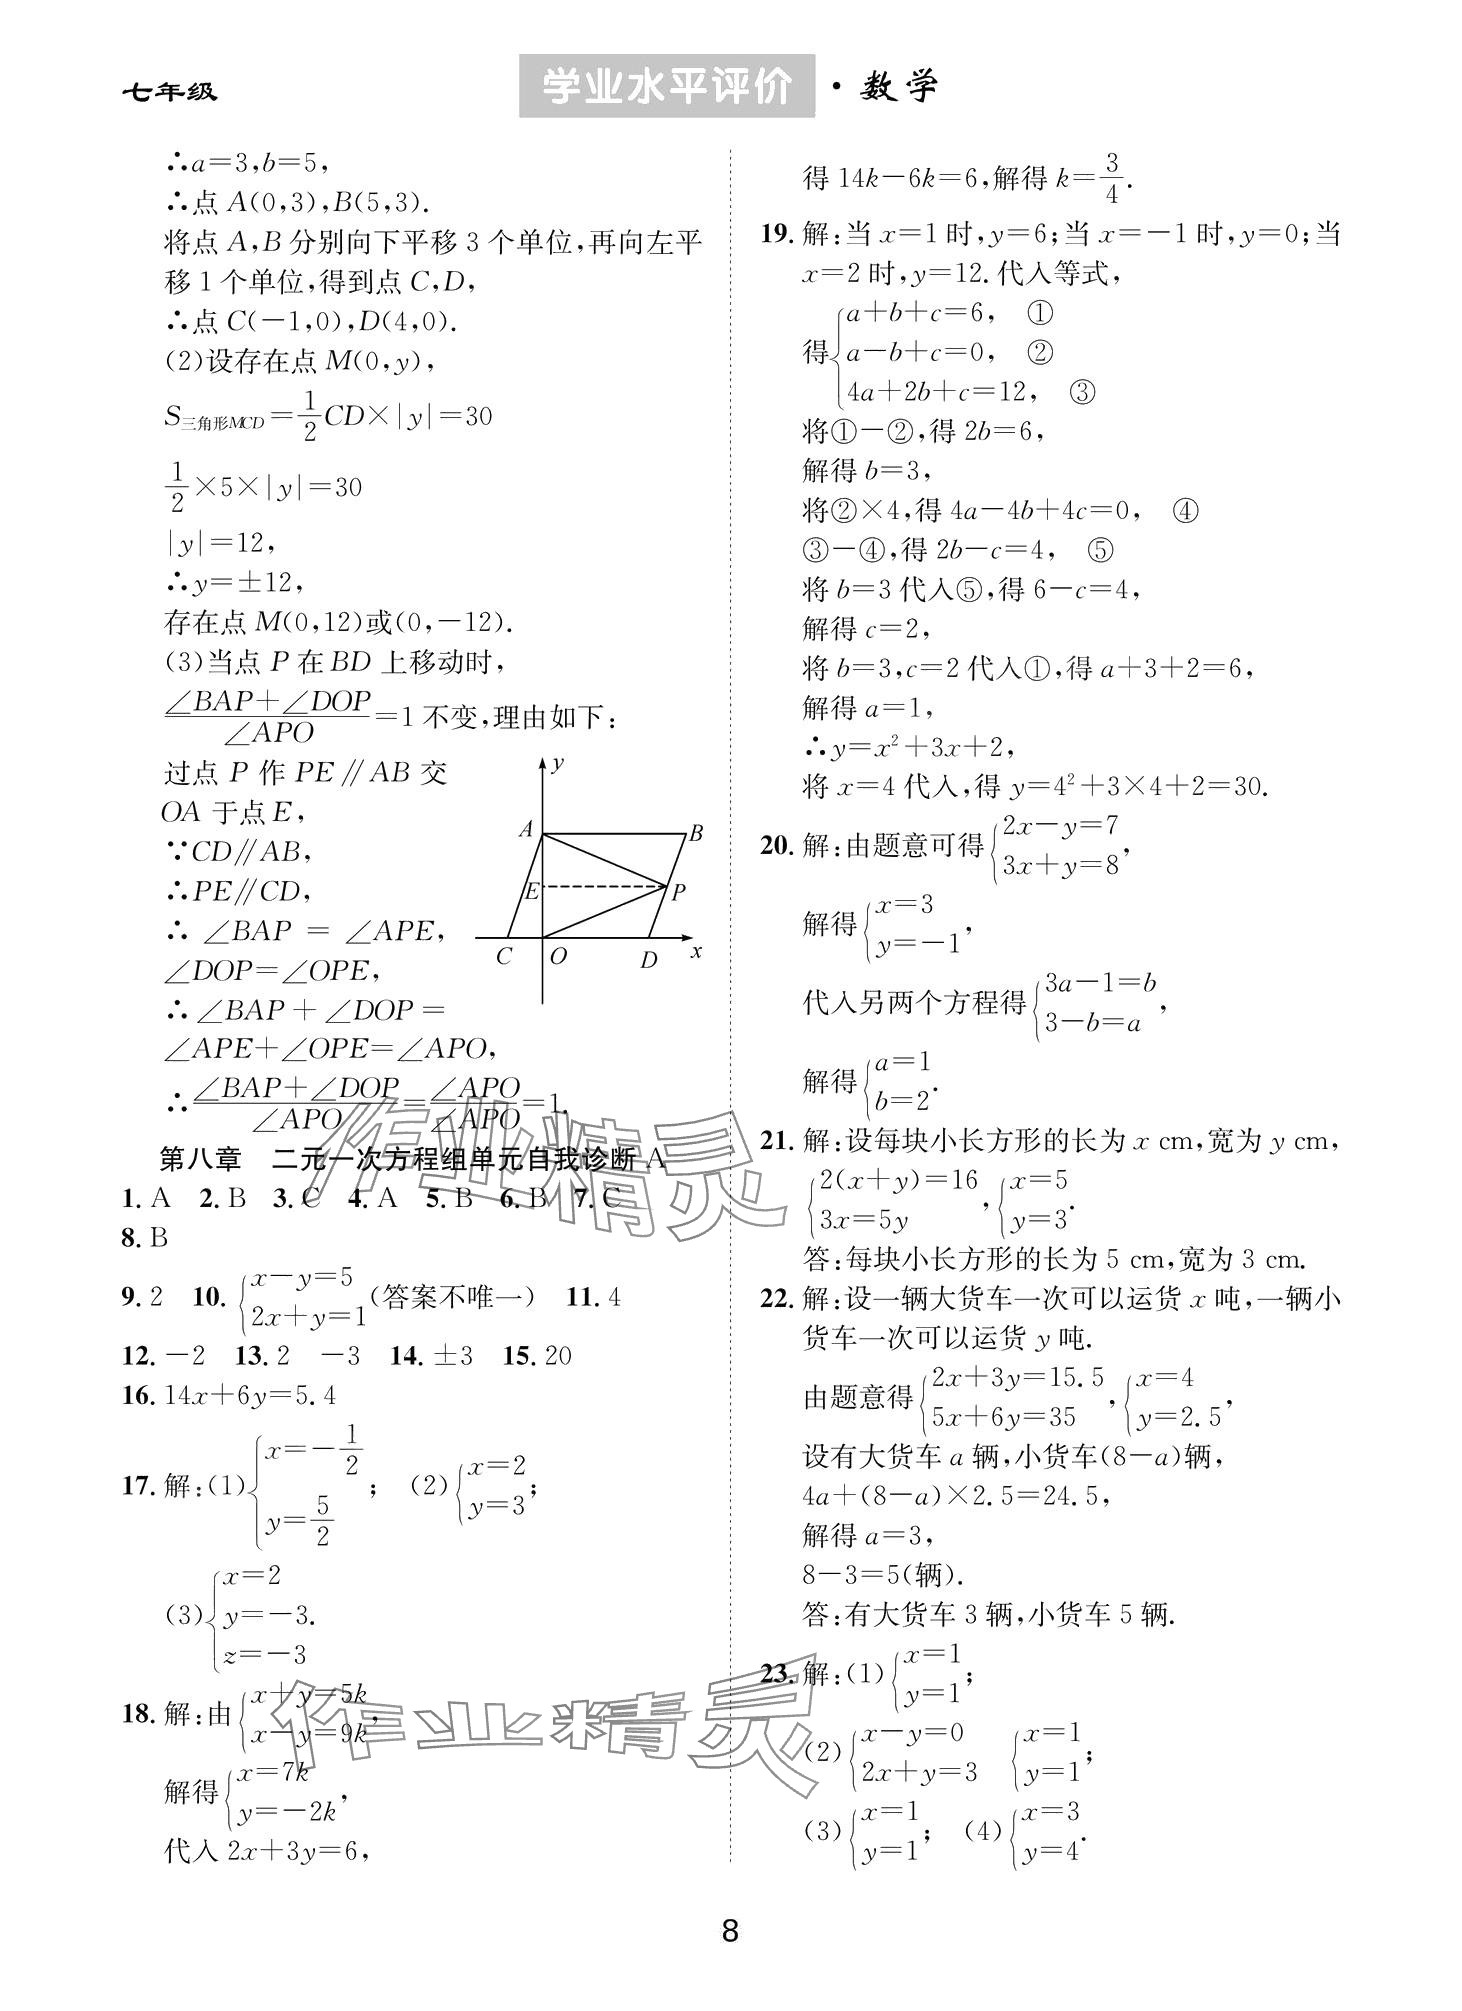 七年级 学业水平评价 · 数学
∴a=3,b=5,
∴点 A(0,3),B(5,3).
将点 A,B 分别向下平移 3 个单位,再向左平
移 1 个单位,得到点 C,D,
∴点 C(-1,0),D(4,0).
(2)设存在点 M(0,y),
S三角形MCD=1/2 CD×|y|=30
1/2×5×|y|=30
|y|=12,
∴y=±12,
存在点 M(0,12)或(0,-12).
(3)当点 P 在 BD 上移动时,
(∠BAP+∠DOP)/∠APO=1 不变,理由如下:
过点 P 作 PE∥AB 交
OA 于点 E,
∵CD∥AB,
∴PE∥CD,
∴ ∠BAP = ∠APE,
∠DOP=∠OPE,
∴ ∠BAP + ∠DOP =
∠APE+∠OPE=∠APO,
∴(∠BAP+∠DOP)/∠APO=∠APO/∠APO=1.
y
A
B
E
P
C
O
D
x
第八章 二元一次方程组单元自我诊断 A
1. A 2. B 3. C 4. A 5. B 6. B 7. C
8. B
9. 2 10. {x-y=5
2x+y=1(答案不唯一) 11. 4
12. -2 13. 2 -3 14. ±3 15. 20
16. 14x+6y=5.4
17. 解:(1){x=-1/2
y=5/2; (2){x=2
y=3;
(3){x=2
y=-3.
z=-3
18. 解:由{x+y=5k
x-y=9k,
解得{x=7k
y=-2k,
代入 2x+3y=6,
得 14k-6k=6,解得 k=3/4.
19. 解:当 x=1 时,y=6;当 x=-1 时,y=0;当
x=2 时,y=12.代入等式,
得{a+b+c=6, ①
a-b+c=0, ②
4a+2b+c=12, ③
将①-②,得 2b=6,
解得 b=3,
将②×4,得 4a-4b+4c=0, ④
③-④,得 2b-c=4, ⑤
将 b=3 代入⑤,得 6-c=4,
解得 c=2,
将 b=3,c=2 代入①,得 a+3+2=6,
解得 a=1,
∴y=x²+3x+2,
将 x=4 代入,得 y=4²+3×4+2=30.
20. 解:由题意可得{2x-y=7
3x+y=8,
解得{x=3
y=-1,
代入另两个方程得{3a-1=b
3-b=a,
解得{a=1
b=2.
21. 解:设每块小长方形的长为 x cm,宽为 y cm,
{2(x+y)=16
3x=5y,{x=5
y=3.
答:每块小长方形的长为 5 cm,宽为 3 cm.
22. 解:设一辆大货车一次可以运货 x 吨,一辆小
货车一次可以运货 y 吨.
由题意得{2x+3y=15.5
5x+6y=35,{x=4
y=2.5,
设有大货车 a 辆,小货车(8-a)辆,
4a+(8-a)×2.5=24.5,
解得 a=3,
8-3=5(辆).
答:有大货车 3 辆,小货车 5 辆.
23. 解:(1){x=1
y=1;
(2){x-y=0
2x+y=3 {x=1
y=1;
(3){x=1
y=1; (4){x=3
y=4.
作业精灵
作业精灵
8